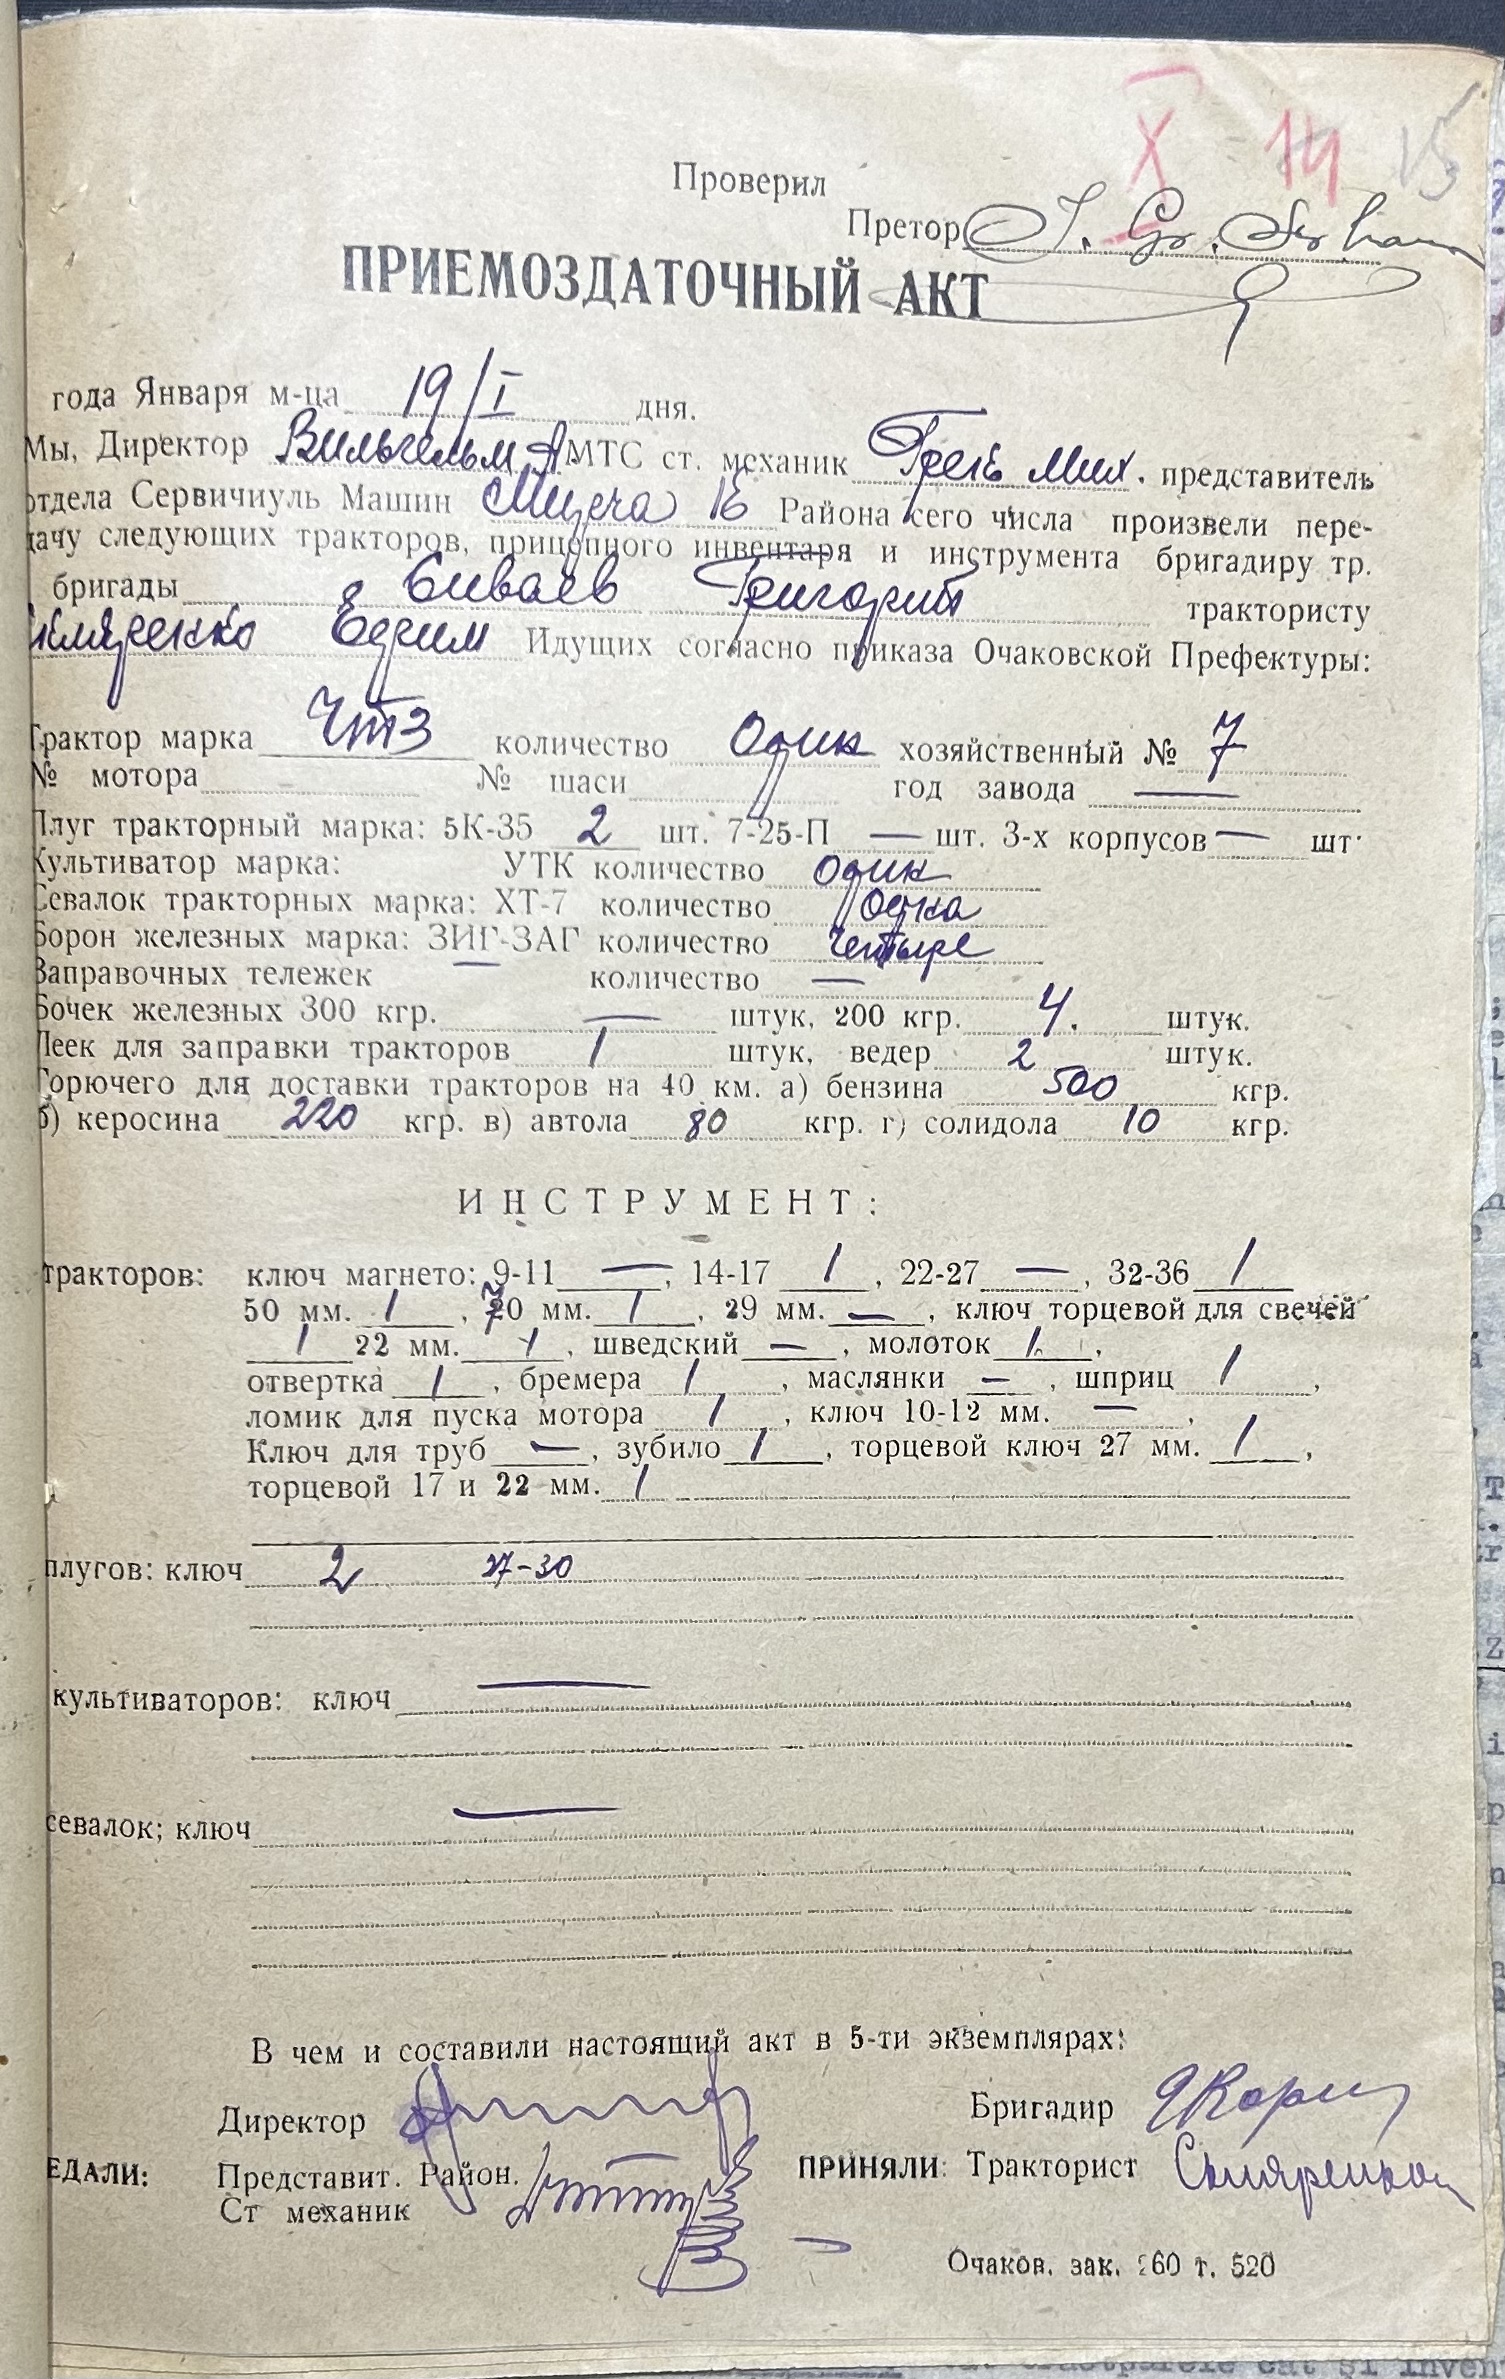 X 14 15
Проверил
Претор
ПРИЕМОЗДАТОЧНЫЙ АКТ
года Января м-ца 19/I дня.
Мы, Директор Вильгельм А МТС ст. механик Грель Мих. представитель
отдела Сервичиуль Машин Района сего числа произвели пере-
дачу следующих тракторов, прицепного инвентаря и инструмента бригадиру тр.
бригады Сиваев Григорий трактористу
Скляренко Ефим Идущих согласно приказа Очаковской Префектуры:
Трактор марка ЧТЗ количество Один хозяйственный № 7
№ мотора № шаси год завода —
Плуг тракторный марка: 5К-35 2 шт. 7-25-П — шт. 3-х корпусов — шт.
Культиватор марка: УТК количество один
Севалок тракторных марка: ХТ-7 количество Одна
Борон железных марка: ЗИГ-ЗАГ количество Четыре
Заправочных тележек — количество —
Бочек железных 300 кгр. — штук, 200 кгр. 4. штук.
Леек для заправки тракторов 1 штук, ведер 2 штук.
Горючего для доставки тракторов на 40 км. а) бензина 500 кгр.
б) керосина 220 кгр. в) автола 80 кгр. г) солидола 10 кгр.
ИНСТРУМЕНТ:
тракторов: ключ магнето: 9-11 —, 14-17 1, 22-27 —, 32-36 1
50 мм. 1, 70 мм. 1, 29 мм. —, ключ торцевой для свечей
1 22 мм. 1, шведский —, молоток 1,
отвертка 1, бремера 1, маслянки —, шприц 1,
ломик для пуска мотора 1, ключ 10-12 мм. —,
Ключ для труб —, зубило 1, торцевой ключ 27 мм. 1,
торцевой 17 и 22 мм. 1
плугов: ключ 2 27-30
культиваторов: ключ —
севалок; ключ —
В чем и составили настоящий акт в 5-ти экземплярах:
Директор Бригадир
ЕДАЛИ: Представит. Район. ПРИНЯЛИ: Тракторист Скляренко
Ст механик
Очаков. зак. 260 т. 520